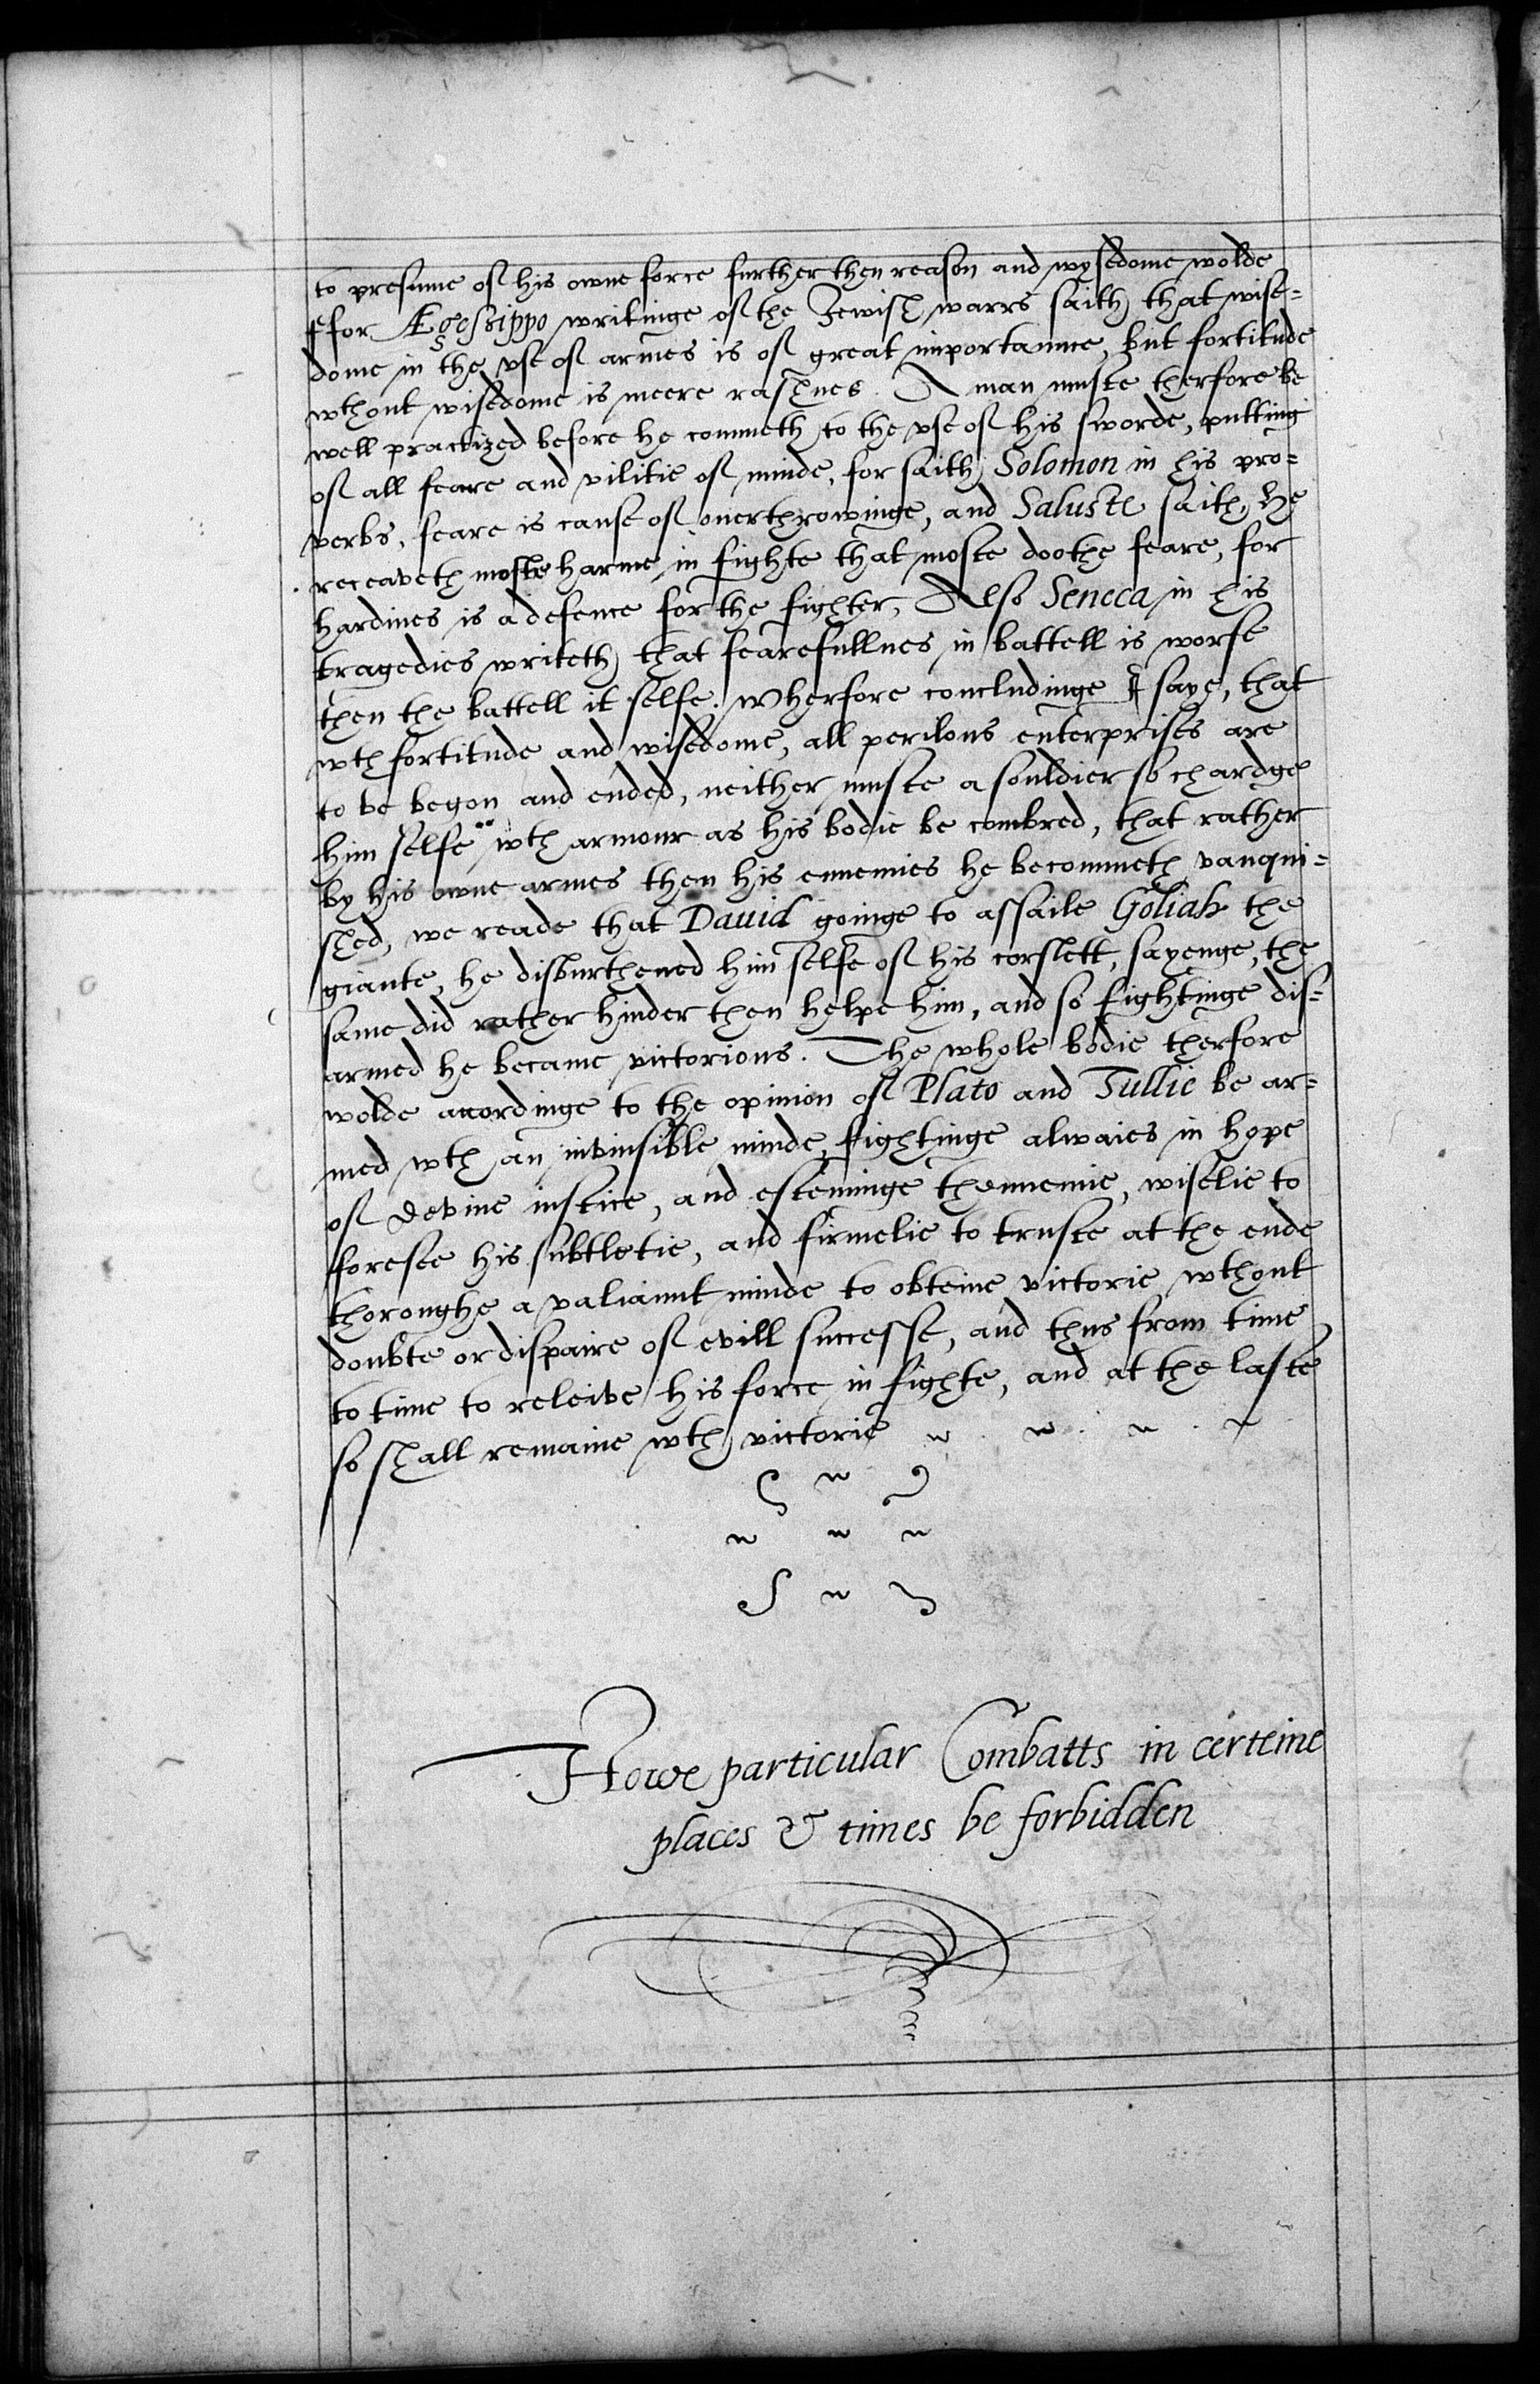 to presume of his owne force further then reason and wysedome wolde
ffor Ægesippo writinge of the Jewish warrs saith that wise=
dome in the vse of armes is of great importannce, but fortitude
wthout wisedome is meere rashnes. A man muste therfore be
well practized before he commeth to the vse of his sworde, putting
of all feare and vilitie of minde, for saith Solomon in his pro=
verbs, feare is cause of ouerthrowinge, and Saluste saith, he
receaveth moste harme in fighte that moste doothe feare, for
hardines is a defence for the fighter, Also Seneca in his
tragedies writeth that fearefullnes in battell is worse
then the battell it selfe. Wherfore concludinge I saye, that
wth fortitude and wisedome, all perilous enterprises are
to be begon and ended, neither muste a souldier so chardge
him selfe wth armour as his bodie be combred, that rather
by his owne armes then his ennemies he becommeth vanqui=
shed, we reade that Dauid goinge to assaile Goliah the
giante, he disburthened him selfe of his corslett, sayenge, the
same did rather hinder then helpe him, and so fightinge dis=
armed he became victorious. The whole bodie therfore
wolde accordinge to the opinion of Plato and Tullie be ar=
med wth an invinsible minde, fightinge alwaies in hope
of devine iustice, and esteminge thennemie, wiselie to
foresee his subtletie, and firmelie to truste at the ende
thoroughe a valiannt minde to obteine victorie wthout
doubte or dispaire of evill successe, and thus from time
to time to releive his force in fighte, and at the laste
so shall remaine wth victorie
Howe particular Combatts in certeine
places & times be forbidden